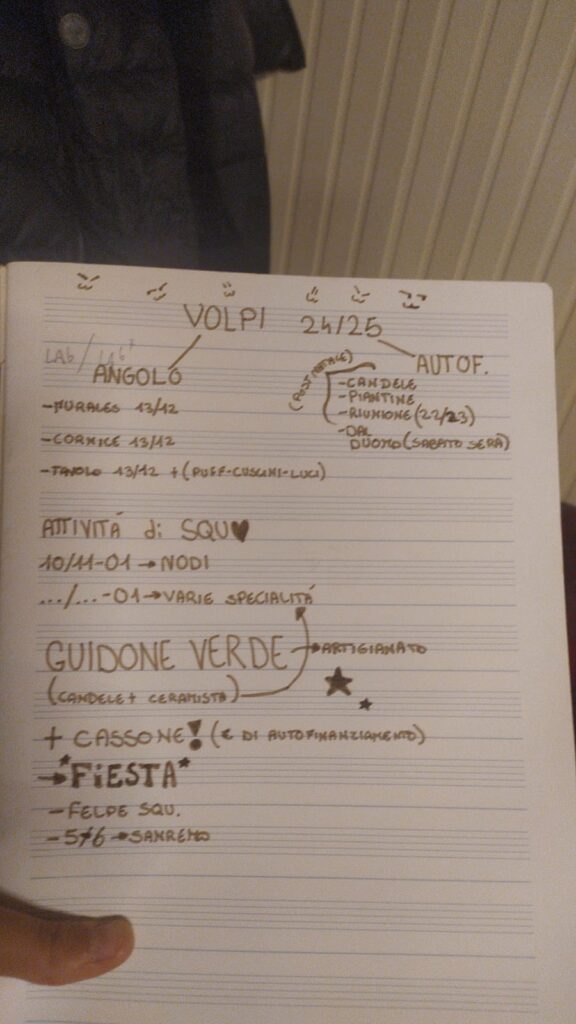 VOLPI 24/25
LAB/LAB
ANGOLO
-MURALES 13/12
-CORNICE 13/12
-TAVOLO 13/12 +(PUFF-CUSCINI-LUCI)
AUTOF.
(POST NATALE)
-CANDELE
-PIANTINE
-RIUNIONE (22/23)
-DAL
DUOMO (SABATO SERA)
ATTIVITÁ di SQU♥
10/11-01→NODI
.../...-01→VARIE SPECIALITÁ
GUIDONE VERDE →ARTIGIANATO
(CANDELE+ CERAMISTA)
+ CASSONE! (€ DI AUTOFINANZIAMENTO)
→*FiESTA*
-FELPE SQU.
-5/6→SANREMO